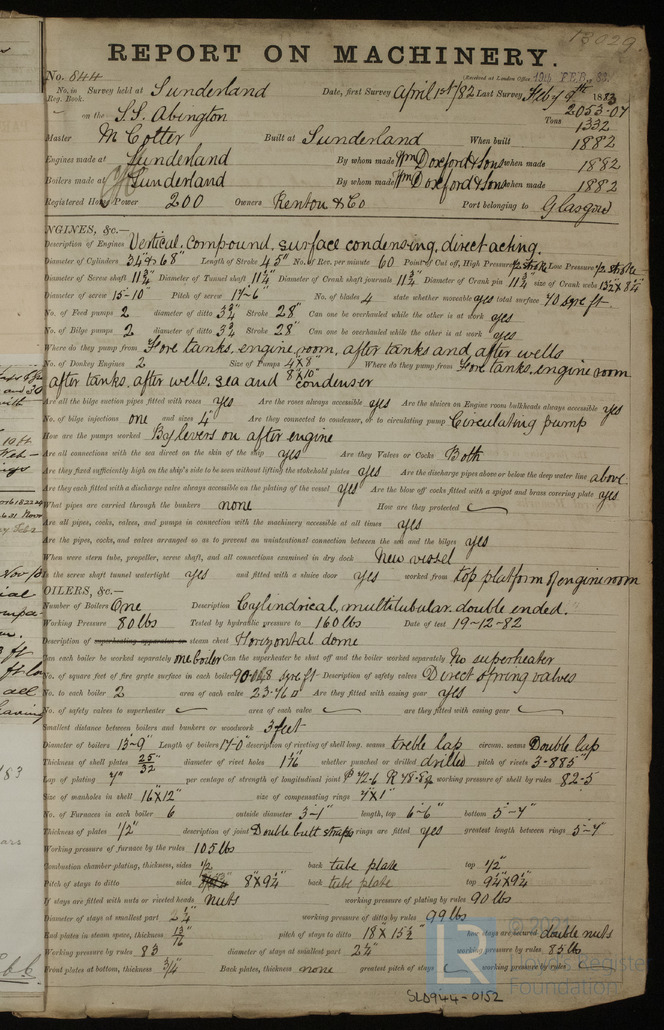 13029.
REPORT ON MACHINERY.
No. 844
(Received at London Office 19th FEB. 83
No. in Survey held at Sunderland Date, first Survey April 1st/82 Last Survey Feby 9th 1883
Reg. Book.
on the S.S. Abington Tons 2053-07
1332
Master M Cotter Built at Sunderland When built 1882
Engines made at Sunderland By whom made Wm Doxford & Sons when made 1882
Boilers made at Sunderland By whom made Wm Doxford & Sons when made 1882
Registered Horse Power 200 Owners Renton & Co Port belonging to Glasgow
NGINES, &c.—
Description of Engines Vertical, compound, surface condensing, direct acting.
Diameter of Cylinders 34" & 68" Length of Stroke 45" No. of Rev. per minute 60 Point of Cut off, High Pressure 1/2 stroke Low Pressure 1/2 stroke
Diameter of Screw shaft 11 3/4" Diameter of Tunnel shaft 11 1/4" Diameter of Crank shaft journals 11 3/4" Diameter of Crank pin 11 3/4" size of Crank webs
Diameter of screw 15-10" Pitch of screw 17-6" No. of blades 4 state whether moveable yes total surface 70 sqre ft.
No. of Feed pumps 2 diameter of ditto 3 3/4" Stroke 28" Can one be overhauled while the other is at work yes
No. of Bilge pumps 2 diameter of ditto 3 3/4" Stroke 28" Can one be overhauled while the other is at work yes
Where do they pump from Fore tanks, engine room, after tanks and after wells
No. of Donkey Engines 2 Size of Pumps 4"x8" Where do they pump from Fore tanks, engine room
8"x10"
after tanks, after wells, sea and condenser
Are all the bilge suction pipes fitted with roses yes Are the roses always accessible yes Are the sluices on Engine room bulkheads always accessible yes
No. of bilge injections one and sizes 4" Are they connected to condenser, or to circulating pump Circulating pump
How are the pumps worked By levers on after engine
Are all connections with the sea direct on the skin of the ship yes Are they Valves or Cocks Both
Are they fixed sufficiently high on the ship's side to be seen without lifting the stokehold plates yes Are the discharge pipes above or below the deep water line above
Are they each fitted with a discharge valve always accessible on the plating of the vessel yes Are the blow off cocks fitted with a spigot and brass covering plate yes
What pipes are carried through the bunkers none How are they protected
Are all pipes, cocks, valves, and pumps in connection with the machinery accessible at all times yes
Are the pipes, cocks, and valves arranged so as to prevent an unintentional connection between the sea and the bilges yes
When were stern tube, propeller, screw shaft, and all connections examined in dry dock New vessel
Is the screw shaft tunnel watertight yes and fitted with a sluice door yes worked from top platform of engine room
OILERS, &c.—
Number of Boilers One Description Cylindrical, multitubular, double ended.
Working Pressure 80 lbs Tested by hydraulic pressure to 160 lbs Date of test 19-12-82
Description of superheating apparatus or steam chest Horizontal dome
Can each boiler be worked separately one boiler Can the superheater be shut off and the boiler worked separately No superheater
No. of square feet of fire grate surface in each boiler sqre ft Description of safety valves Direct spring valves
No. to each boiler 2 area of each valve 23.760 Are they fitted with easing gear yes
No. of safety valves to superheater area of each valve are they fitted with easing gear
Smallest distance between boilers and bunkers or woodwork 3 feet
Diameter of boilers 13-9" Length of boilers 17-0" description of riveting of shell long. seams treble lap circum. seams Double lap
Thickness of shell plates 25/32" diameter of rivet holes 1 1/16" whether punched or drilled drilled pitch of rivets 3-885"
Lap of plating 7" per centage of strength of longitudinal joint P 72-6 R 78-89 working pressure of shell by rules 82-5
Size of manholes in shell 16"x12" size of compensating rings 7"x1"
No. of Furnaces in each boiler 6 outside diameter 3-1" length, top 6-6" bottom 5-7"
Thickness of plates 1/2" description of joint Double butt straps rings are fitted yes greatest length between rings 5-7"
Working pressure of furnace by the rules 105 lbs
Combustion chamber plating, thickness, sides 1/2 back tube plate top 1/2"
Pitch of stays to ditto sides 8"x9 1/4" back tube plate top 9 1/4"x9 1/4"
If stays are fitted with nuts or riveted heads nuts working pressure of plating by rules 90 lbs
Diameter of stays at smallest part working pressure of ditto by rules 99 lbs
End plates in steam space, thickness 13/16" pitch of stays to ditto 18"x15 1/2" how stays are secured double nuts
Working pressure by rules 83 diameter of stays at smallest part 2 1/4" working pressure by rules 85 lbs
Front plates at bottom, thickness 3/4" Back plates, thickness none greatest pitch of stays working pressure by rules
SLD944-0152
© 2021
Lloyd's Register
Foundation